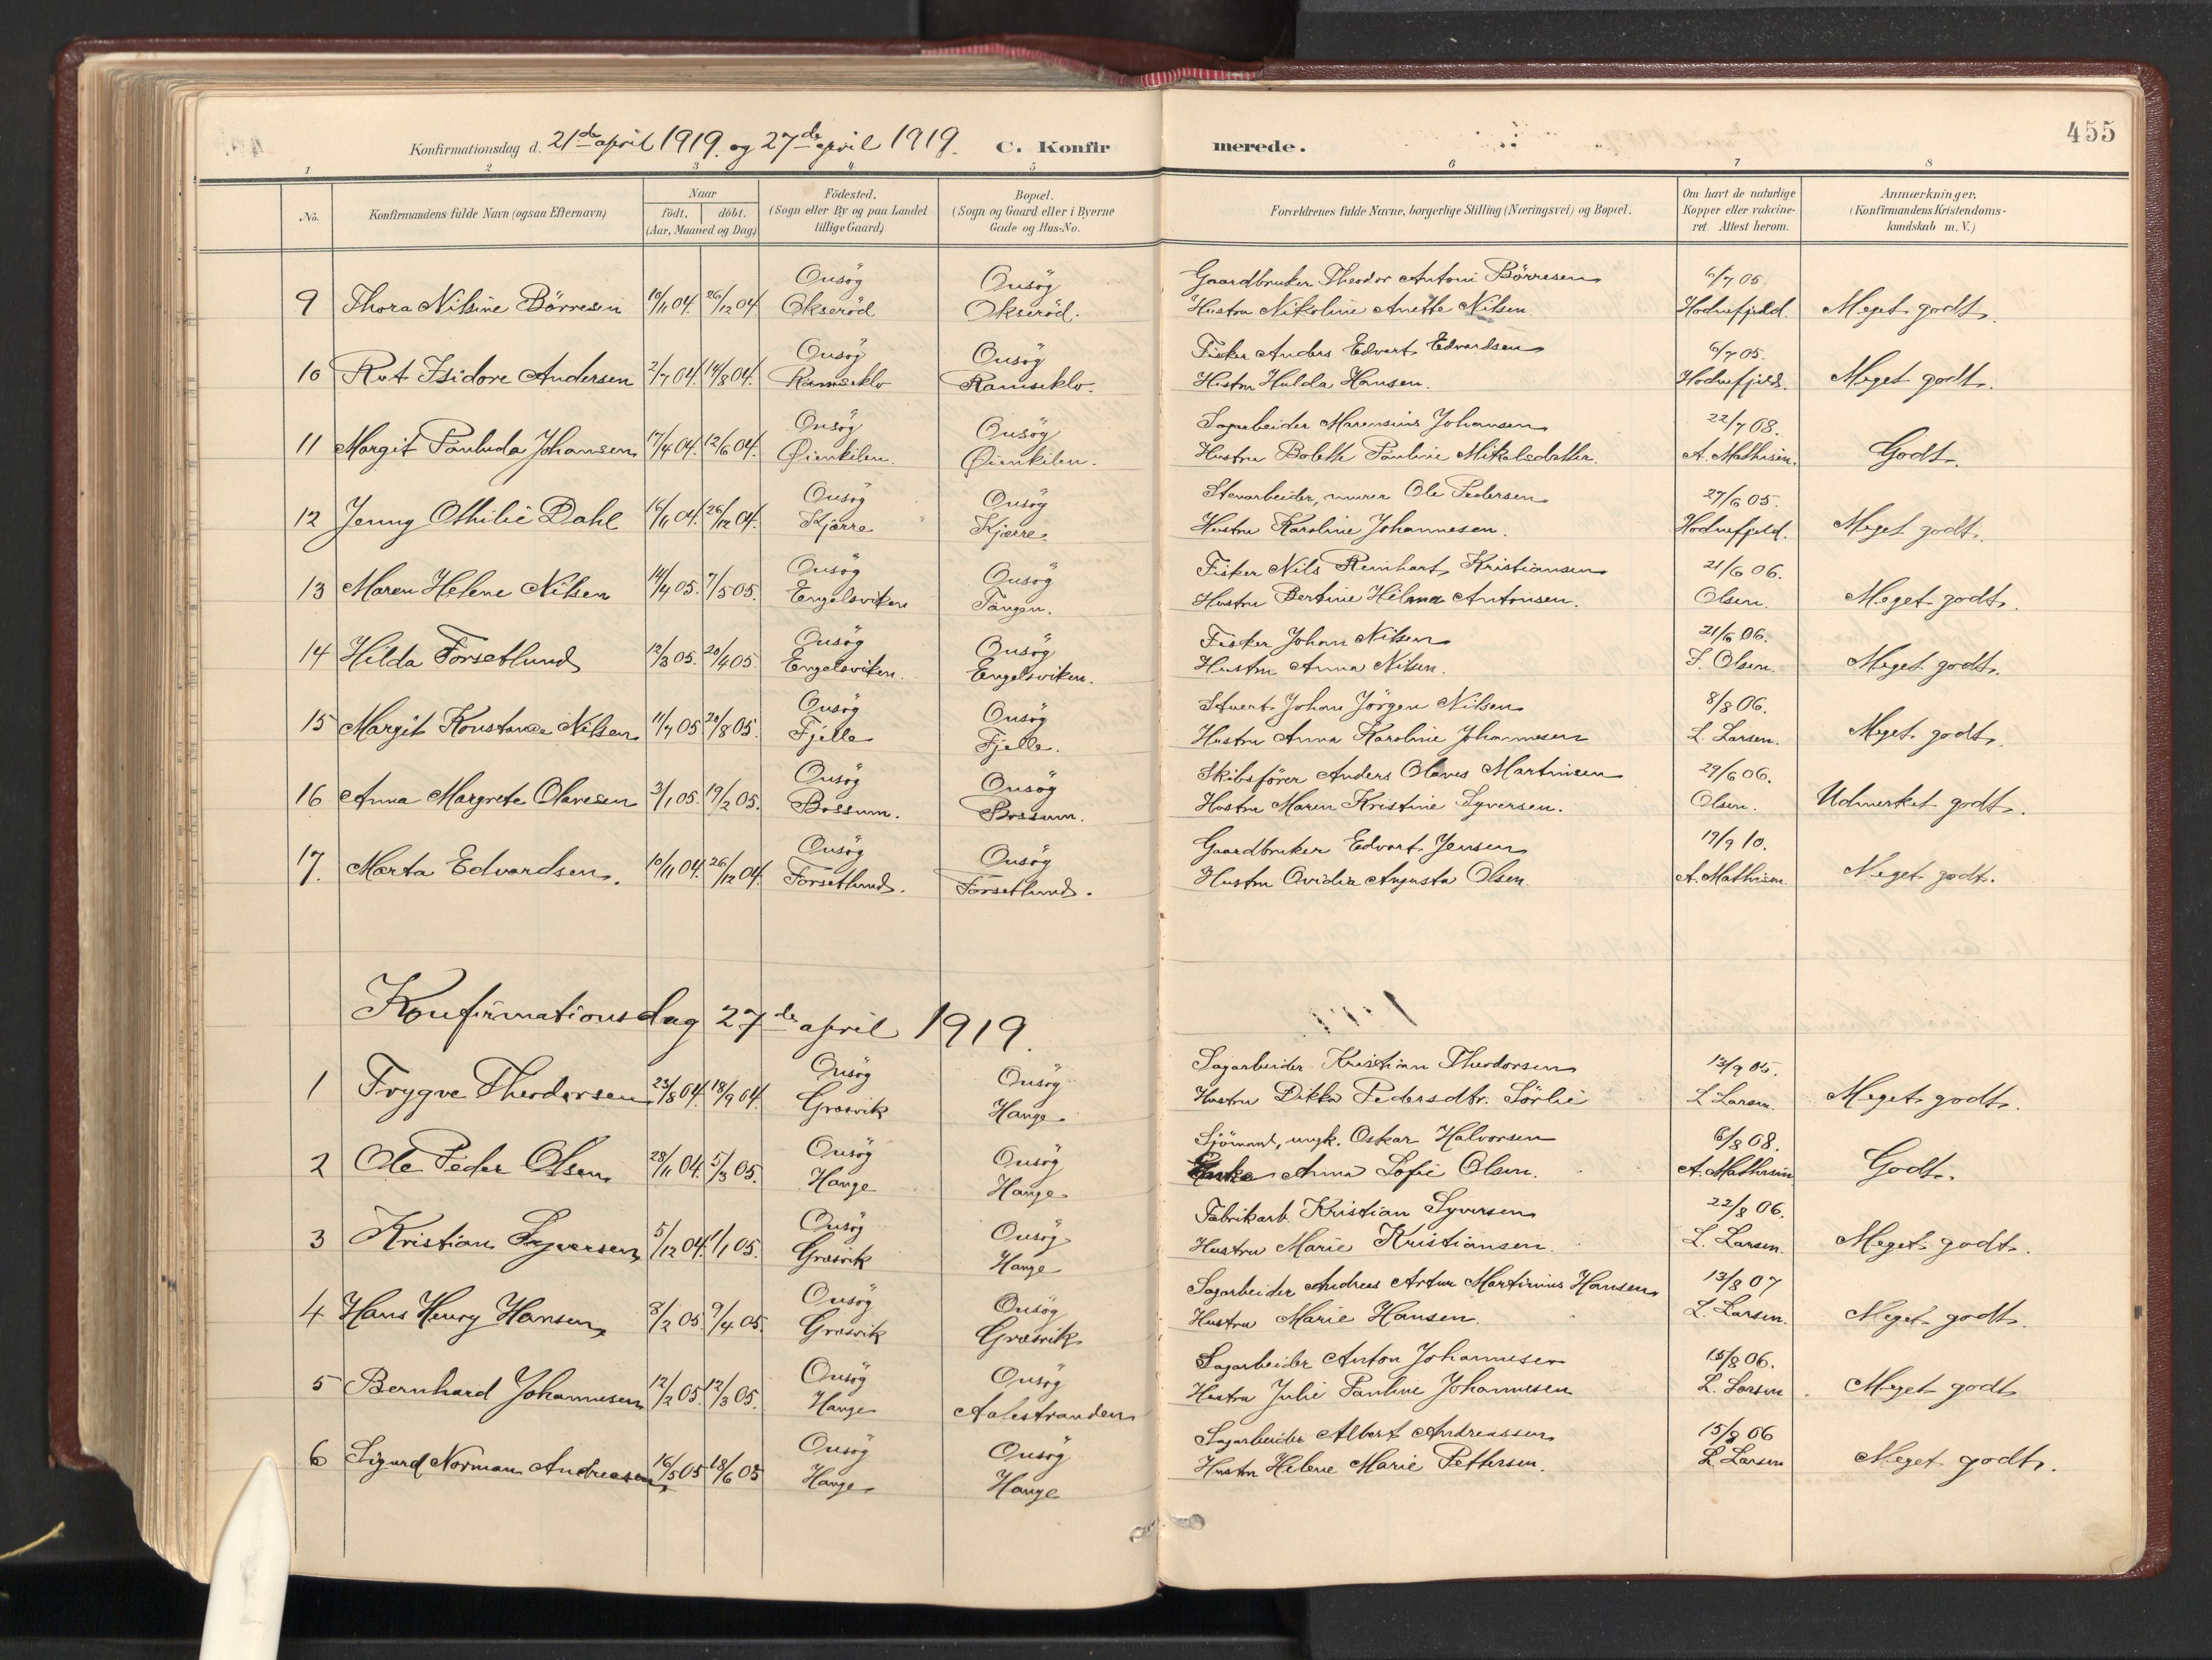 455
Konfirmationsdag d. 21de april 1919. og 27de april 1919. C. Konfirmerede.
1 2 3 4 5 6 7 8
No. Konfirmandens fulde Navn (ogsaa Efternavn) Naar födt. döbt. (Aar, Maaned og Dag) Födested. (Sogn eller By og paa Landet tillige Gaard) Bopæl. (Sogn og Gaard eller i Byerne Gade og Hus-No. Forældrenes fulde Navne, borgerlige Stilling (Næringsvei) og Bopæl. Om havt de naturlige Kopper eller vakcineret. Attest herom. Anmærkninger. (Konfirmandens Kristendomskundskab m. V.)
Onsög Onsög Gaardbruker Theodor Antoni Börresen 6/7 05.
9 Thora Nilsine Börresen 10/11 04. 26/12 04. Okseröd Okseröd. Hustru Nikoline Anette Nilsen. Hodnefjeld. Meget godt.
Onsög Onsög Fisker Anders Edvart Edvardsen 6/7 05.
10 Rut Isidore Andersen 2/7 04. 14/8 04. Ramseklo Ramseklo. Hustru Hulda Hansen. Hodnefjeld. Meget godt.
Onsög Onsög Sagarbeider Marensius Johansen 22/7 08.
11 Margit Pauluda Johansen 17/4 04. 12/6 04. Øienkilen. Øienkilen. Hustru Bolette Pauline Mikalsdatter. A. Mathisen. Godt.
Onsög Onsög Stenarbeider, murer Ole Pedersen 27/6 05.
12 Jenny Othilie Dahl 16/11 04. 26/12 04. Kjærre Kjærre. Hustru Karoline Johannesen. Hodnefjeld. Meget godt.
Onsög Onsög Fisker Nils Reinhart Kristiansen 21/6 06.
13 Maren Helene Nilsen 14/4 05. 7/5 05. Engelsviken Tangen. Hustru Bertine Hilma Antonsen. Olsen. Meget godt.
Onsög Onsög Fisker Johan Nilsen 21/6 06.
14 Hilda Forsetlund 12/3 05. 20/4 05. Engelsviken. Engelsviken. Hustru Anna Nilsen. S. Olsen. Meget godt.
Onsög Onsög Stuert Johan Jörgen Nilsen 8/8 06.
15 Margit Konstance Nilsen 11/7 05. 20/8 05. Fjelle Fjelle. Hustru Anna Karoline Johannesen L. Larsen. Meget godt.
Onsög Onsög Skibsförer Anders Olaves Martinsen 29/6 06.
16 Anna Margrete Olavesen 3/1 05. 19/2 05. Bossum. Bossum. Hustru Maren Kristine Syversen. Olsen. Udmerket godt.
Onsög Onsög Gaardbruker Edvart Jensen 19/9 10.
17. Marta Edvardsen. 10/11 04. 26/12 04. Forsetlund. Forsetlund. Hustru Ovidia Augusta Olsen. A. Mathisen. Meget godt.
Konfirmationsdag 27de april 1919.
Onsög Onsög Sagarbeider Kristian Theodorsen 13/9 05.
1 Trygve Theodorsen 23/8 04. 18/9 04. Græsvik Hauge Hustru Dikka Pedersdtr. Sörlie L. Larsen. Meget godt.
Onsög Onsög Sjömand, ungk. Oskar Halvorsen 6/8 08.
2 Ole Peder Olsen 28/11 04. 5/3 05. Hauge Hauge Anna Sofie Olsen. A. Mathisen Godt.
Onsög Onsög Fabrikarb. Kristian Syversen 22/8 06.
3 Kristian Syversen 5/12 04. 1/1 05. Græsvik Hauge Hustru Marie Kristiansen L. Larsen. Meget godt.
Onsög Onsög Sagarbeider Andreas Artur Martinius Hansen 13/8 07
4 Hans Henry Hansen 8/2 05. 9/4 05. Græsvik Græsvik Hustru Marie Hansen. L. Larsen. Meget godt.
Onsög Onsög Sagarbeider Anton Johannesen 15/8 06.
5 Bernhard Johannesen 12/2 05. 12/3 05. Hauge Aalestranden Hustru Julie Pauline Johannesen L. Larsen. Meget godt
Onsög Onsög Sagarbeider Albert Andreassen 15/8 06
6 Sigurd Norman Andreasen 16/5 05 18/6 05 Hauge Hauge Hustru Helene Marie Pettersen. L Larsen Meget godt.